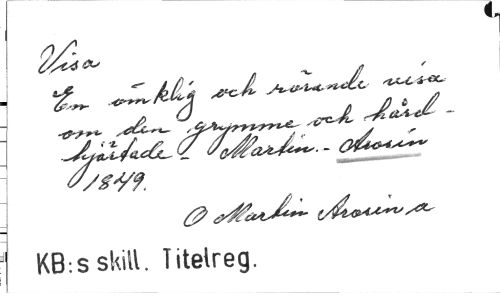 Visa
En ömklig och rörande visa
om den grymme och hård-
hjärtade - Martin. - Arosin
1849.
O Martin Arosin a
KB:s skill. Titelreg.